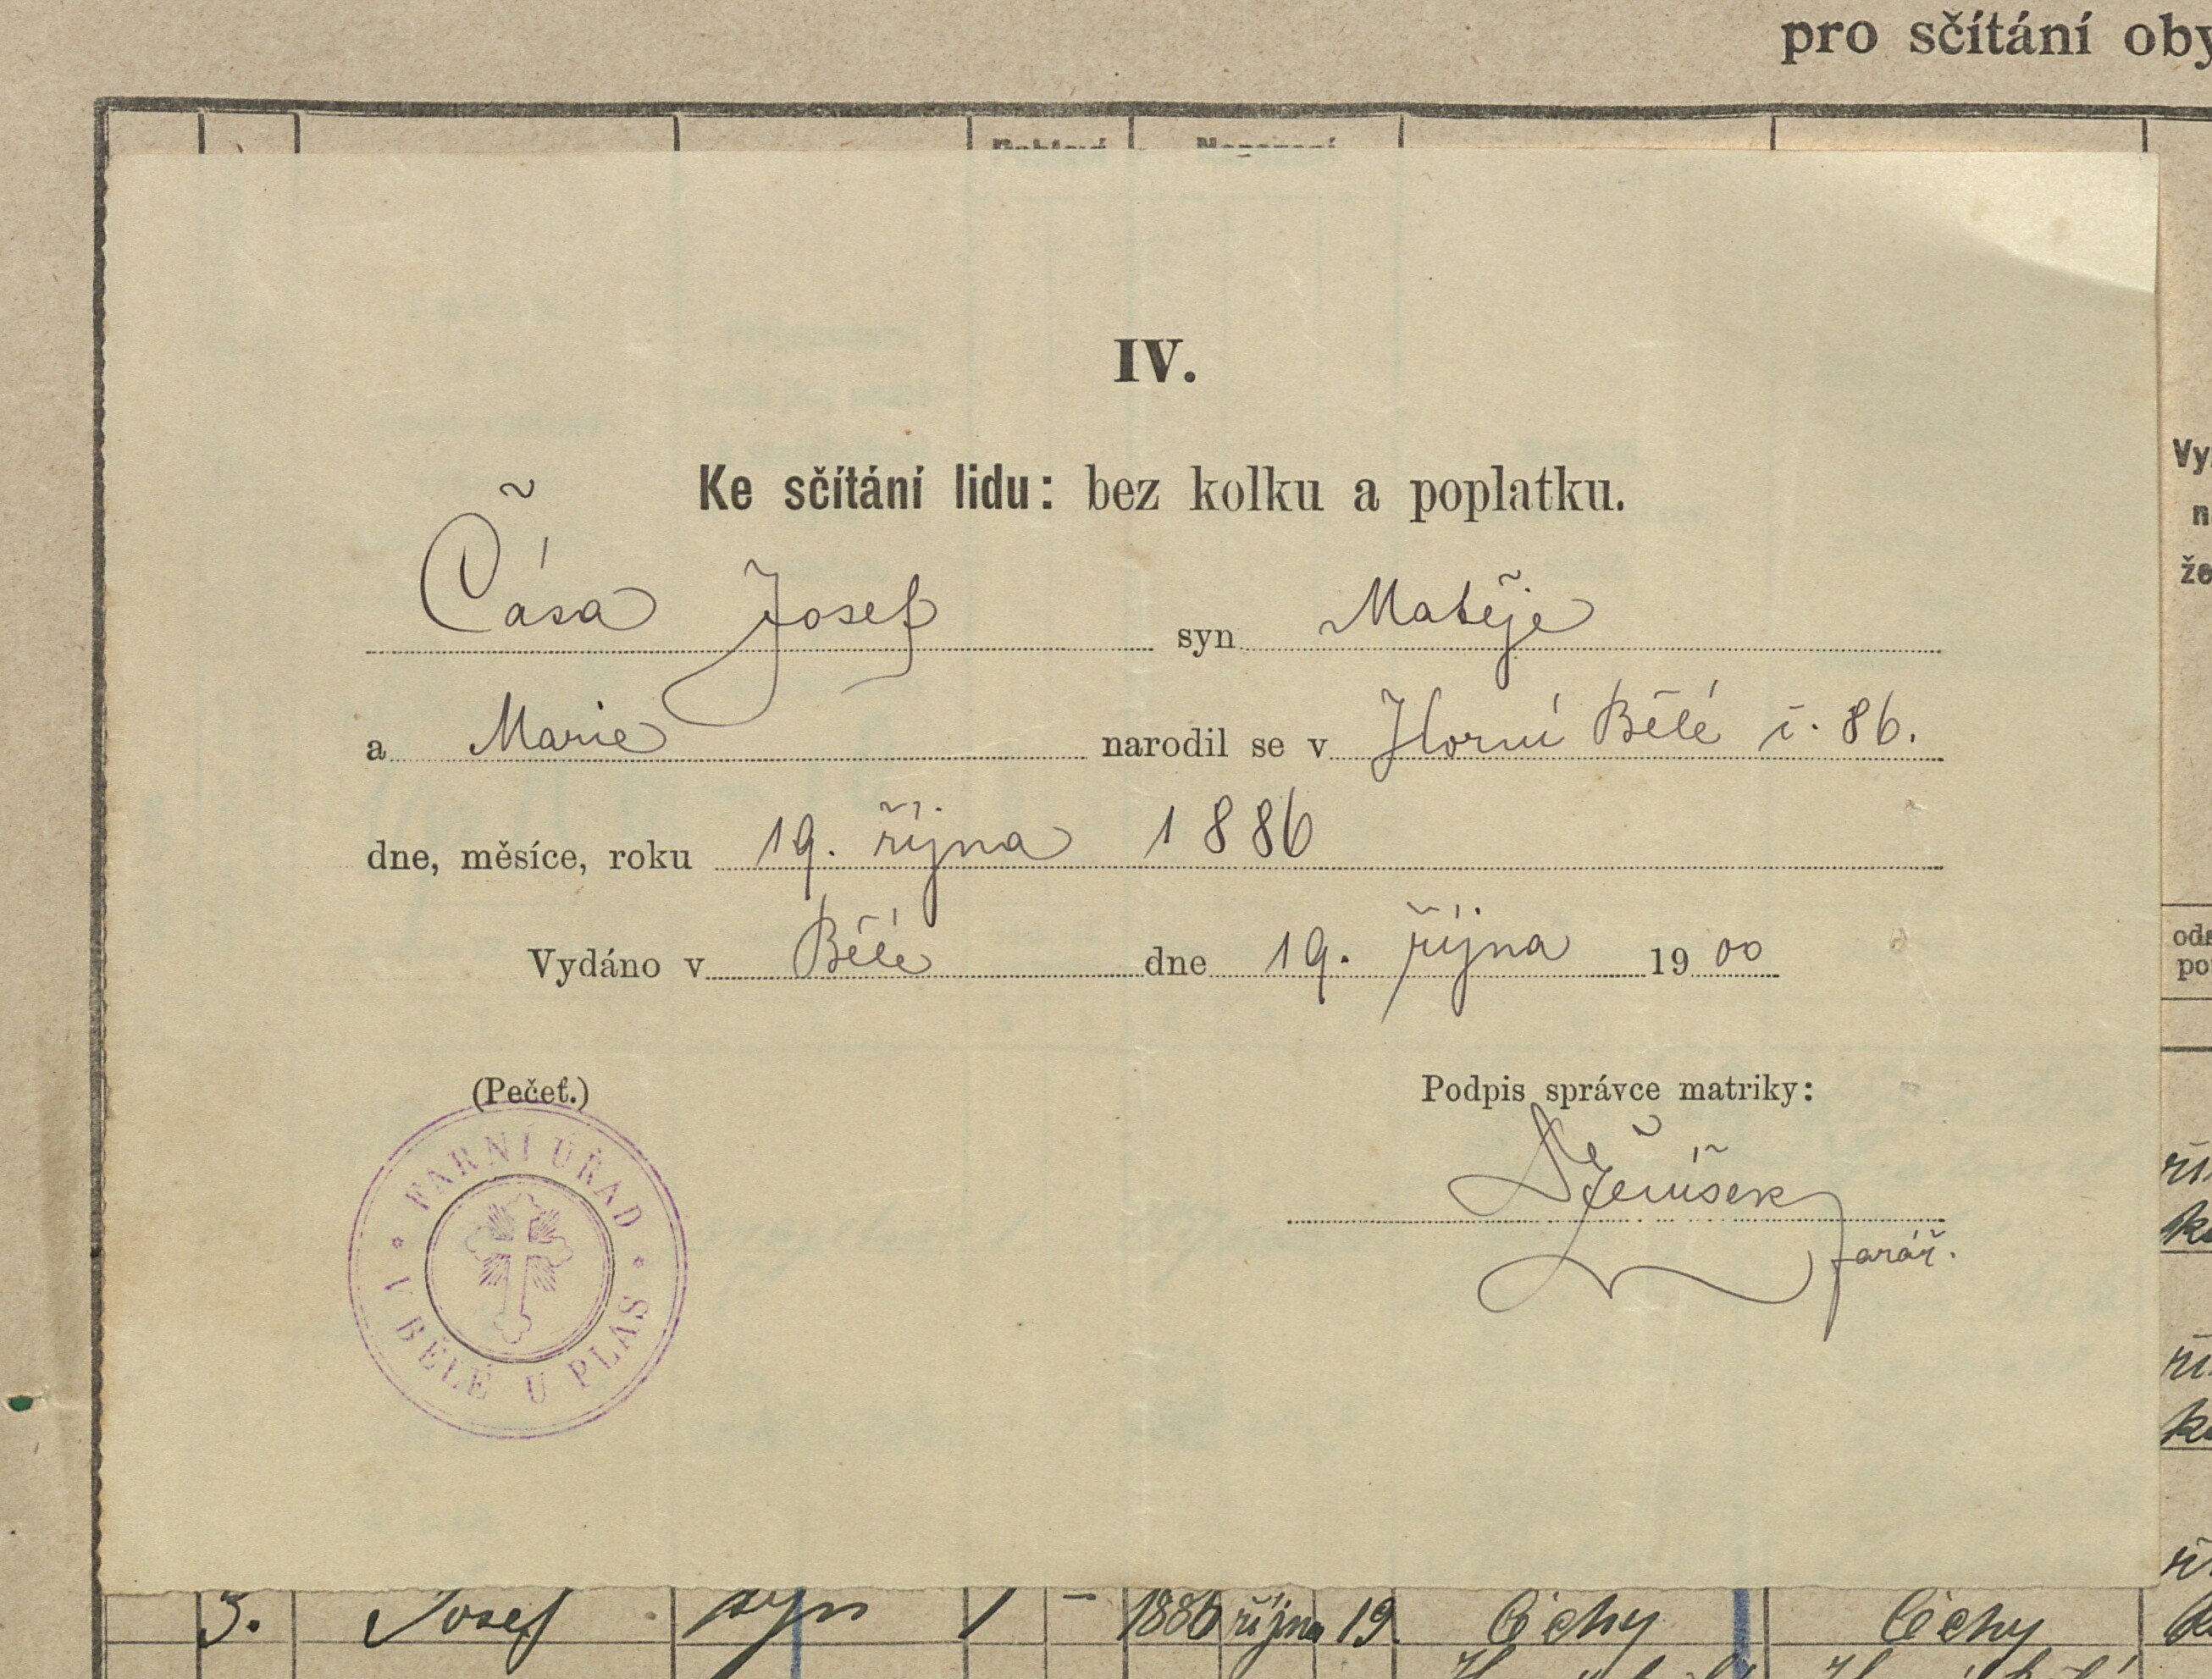 pro sčítání oby
IV.
Ke sčítání lidu: bez kolku a poplatku.
Čása Josef syn Matěje
a Marie narodil se v Horní Bělé č. 86.
dne, měsíce, roku 19. října 1886
Vydáno v Bělé dne 19. října 1900
(Pečeť.)
Podpis správce matriky:
farář.
FARNÍ ÚŘAD
V BĚLÉ U PLAS
3. Josef syn 1 – 1886 října 19. Čechy Čechy